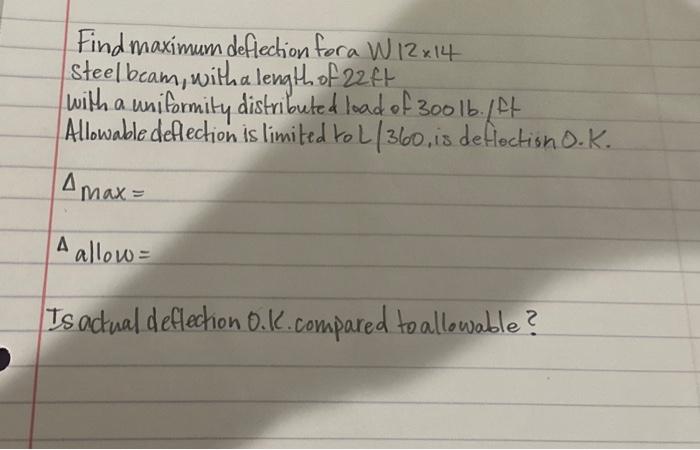 Find maximum deflection for a W12x14
Steel beam, with a length of 22ft
with a uniformity distributed load of 300 lb./ft
Allowable deflection is limited to L/360, is deflection O.K.
Δ max =
Δ allow =
Is actual deflection O.K. compared to allowable?